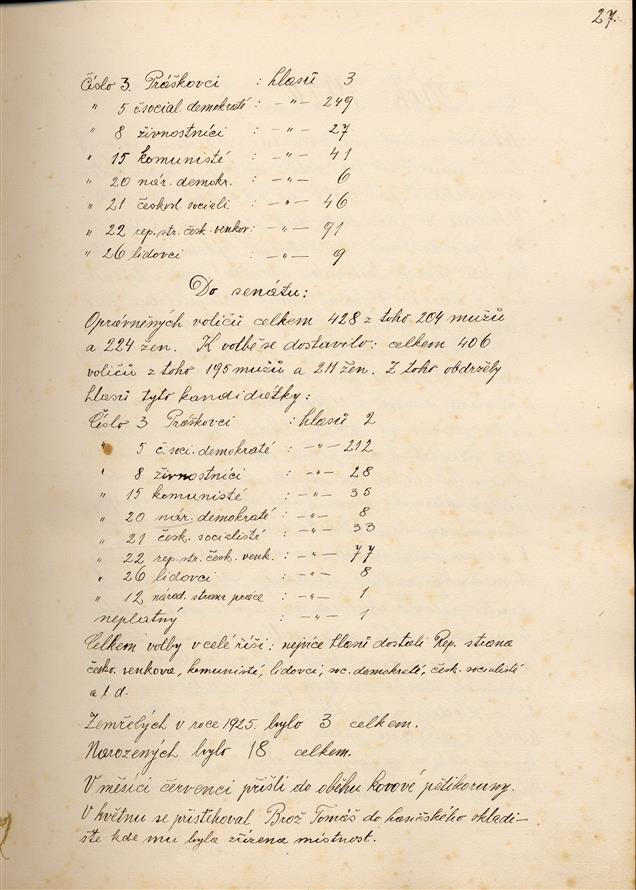 27.
Číslo 3. Práškovci : hlasů 3
" 5 čsocial. demokraté : –"– 249
" 8 živnostníci : –"– 27
" 15 komunisté : –"– 41
" 20 nár. demokr. : –"– 6
" 21 českosl. sociali. : –"– 46
" 22 rep. str. česk. venkov : –"– 91
" 26 lidovci : –"– 9
Do senátu:
Oprávněných voličů celkem 428 z toho 204 mužů
a 224 žen. K volbě se dostavilo: celkem 406
voličů z toho 195 mužů a 211 žen. Z toho obdržely
hlasů tyto kandidátky:
Číslo 3 Práškovci : hlasů 2
" 5 č. soci. demokraté : –"– 212
" 8 živnostníci : –"– 28
" 15 komunisté : –"– 35
" 20 nár. demokraté : –"– 8
" 21 česk. socialisté : –"– 33
" 22 rep. str. česk. venk. : –"– 77
" 26 lidovci : –"– 8
" 12 národ. strana práce : –"– 1
neplatný : –"– 1
Celkem volby v celé říši: nejvíce hlasů dostali Rep. strana
česko. venkova, komunisté, lidovci, soc. demokraté, česk. socialisté
a t d.
Zemřelých v roce 1925. bylo 3 celkem.
Narozených bylo 18 celkem.
V měsíci červenci přišli do oběhu kovové pětikoruny.
V květnu se přistěhoval Brož Tomáš do hasičského skladi–
ště kde mu byla zřízena místnost.